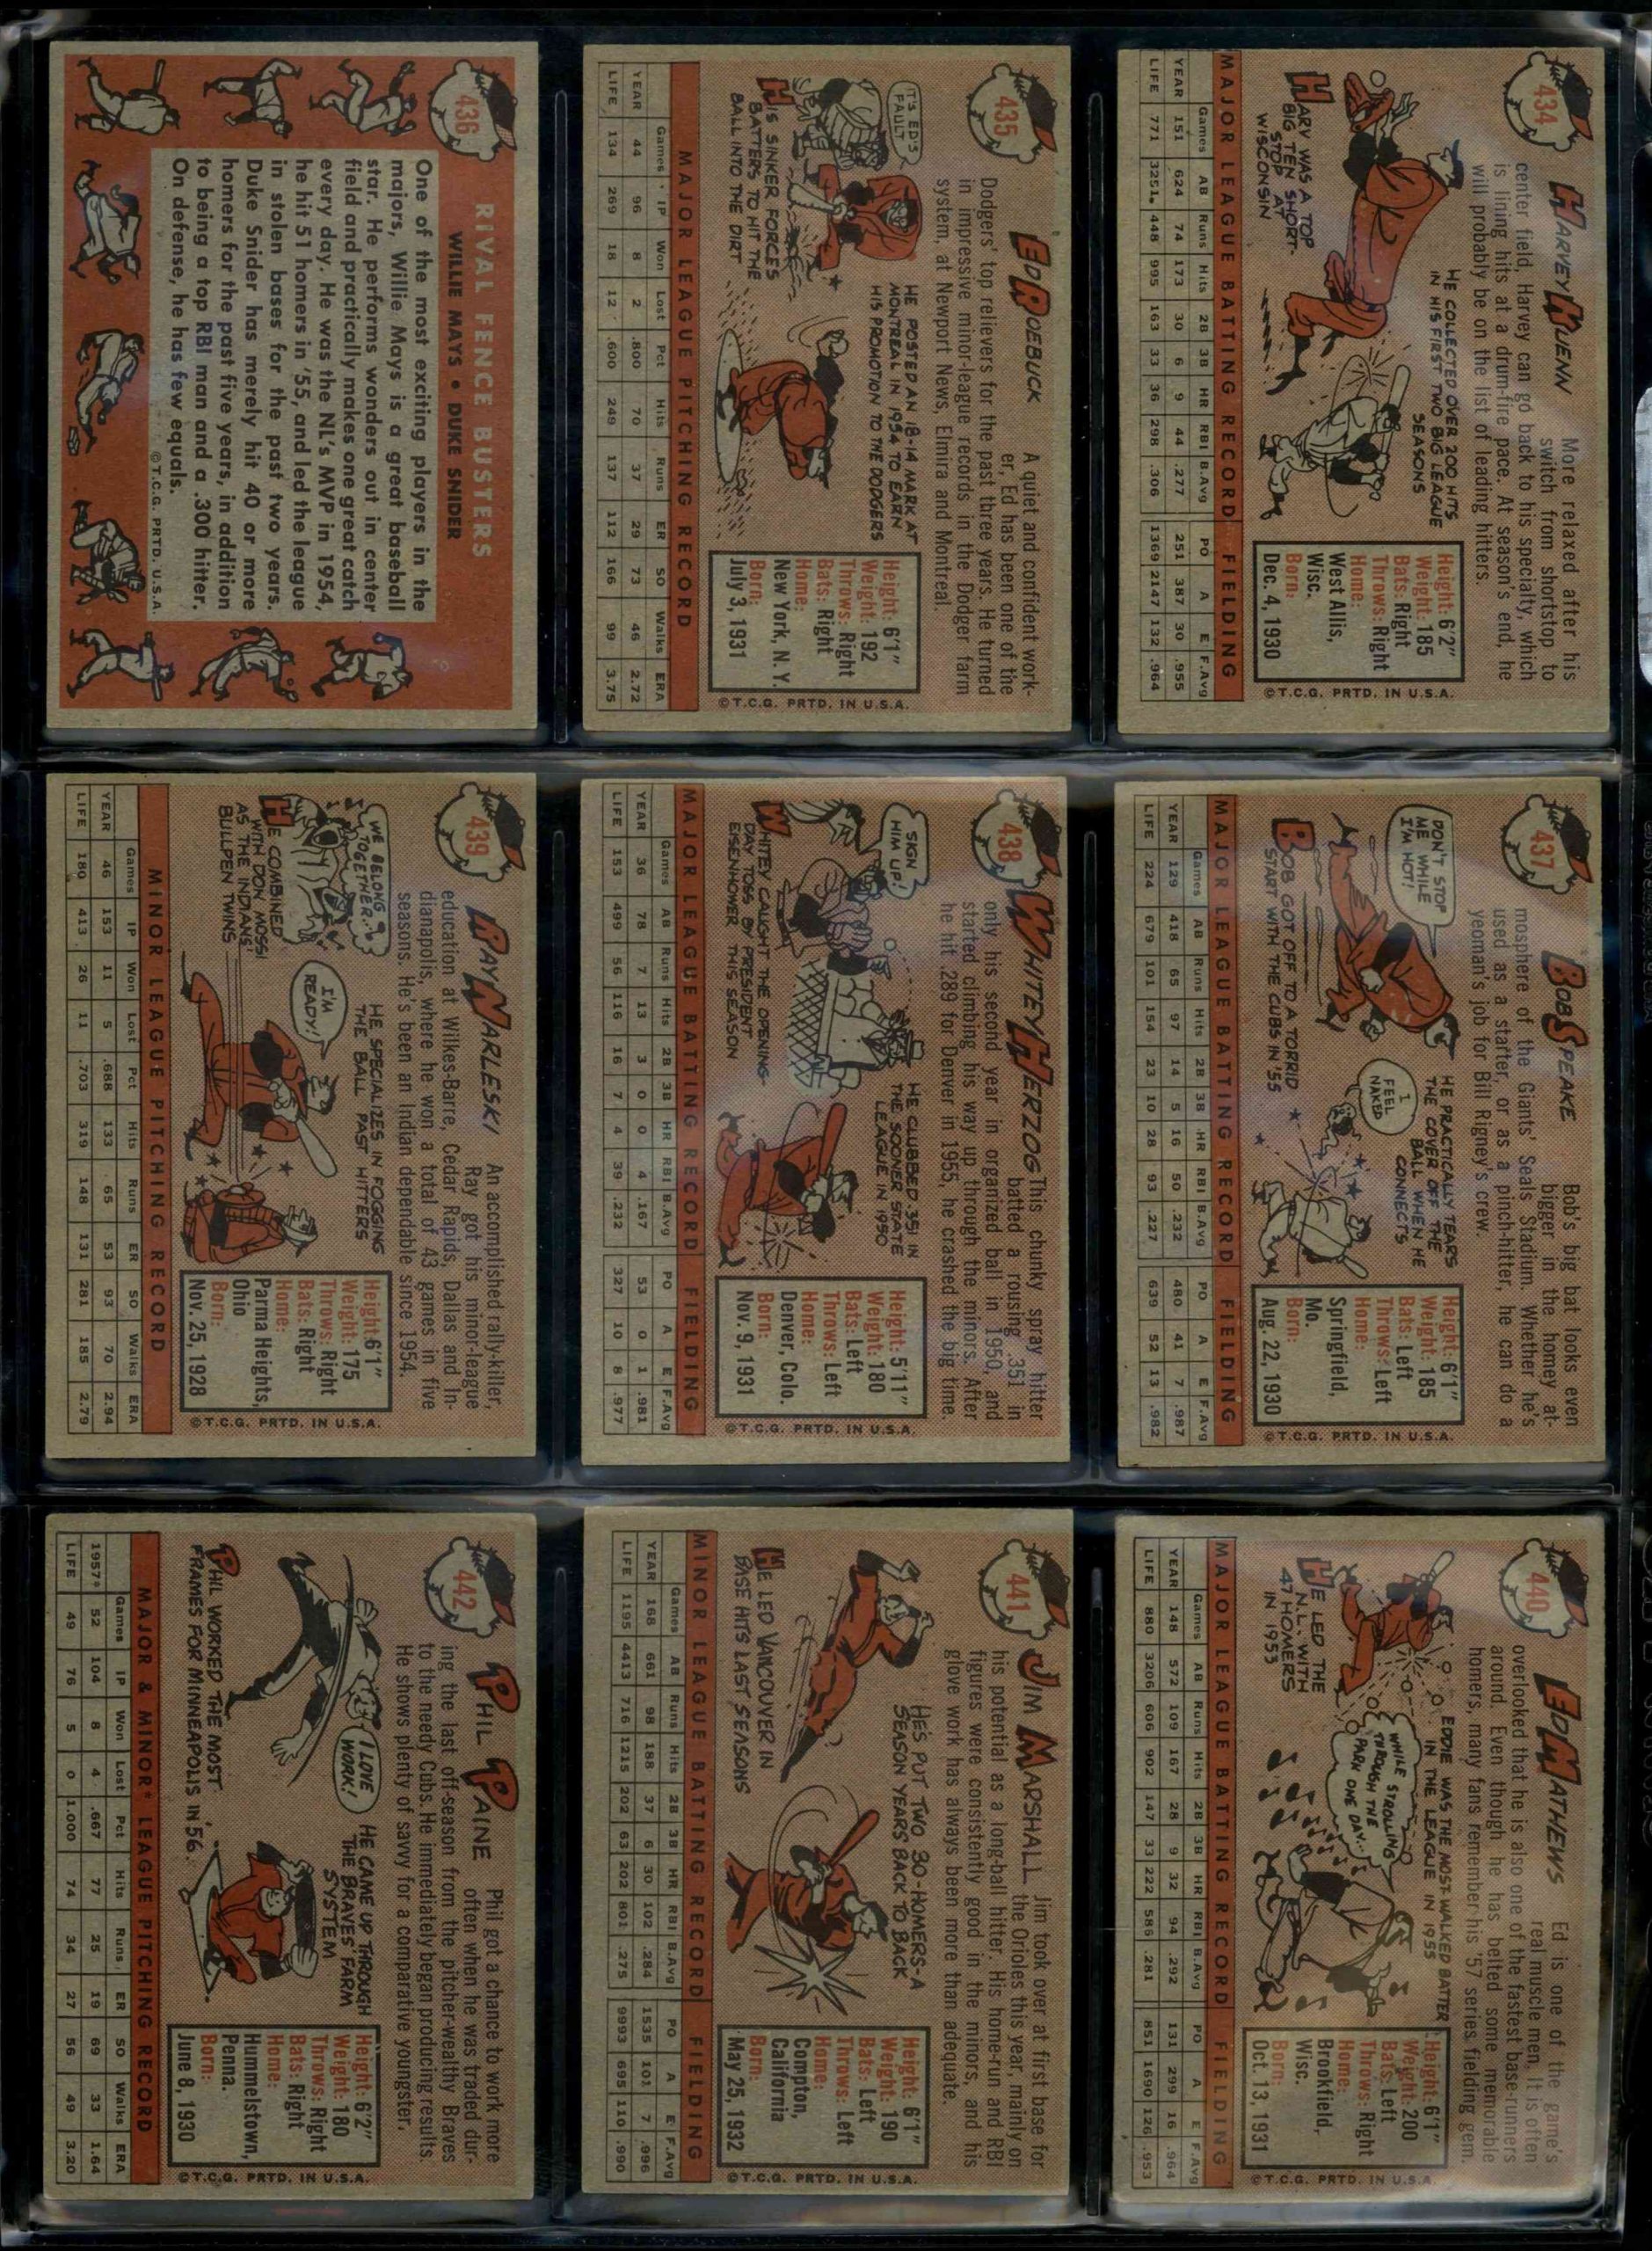 434
HARVEY KUENN
More relaxed after his
switch from shortstop to
center field, Harvey can go back to his specialty, which
is lining hits at a drum-fire pace. At season's end, he
will probably be on the list of leading hitters.
HARV WAS A TOP
BIG TEN SHORT-
STOP AT
WISCONSIN
HE COLLECTED OVER 200 HITS
IN HIS FIRST TWO BIG LEAGUE
SEASONS
Height: 6'2"
Weight: 185
Bats: Right
Throws: Right
Home:
West Allis,
Wisc.
Born:
Dec. 4, 1930
©T.C.G. PRTD. IN U.S.A.
MAJOR LEAGUE BATTING RECORD FIELDING
Games AB Runs Hits 2B 3B HR RBI B.Avg PO A E F.Avg
YEAR 151 624 74 173 30 6 9 44 .277 251 387 30 .955
LIFE 771 3251 448 995 163 33 36 298 .306 1369 2147 132 .964
435
ED ROEBUCK
A quiet and confident work-
er, Ed has been one of the
Dodgers' top relievers for the past three years. He turned
in impressive minor-league records in the Dodger farm
system, at Newport News, Elmira and Montreal.
IT'S ED'S
FAULT!
HIS SINKER FORCES
BATTERS TO HIT THE
BALL INTO THE DIRT
HE POSTED AN 18-14 MARK AT
MONTREAL IN 1954 TO EARN
HIS PROMOTION TO THE DODGERS
Height: 6'1"
Weight: 192
Throws: Right
Bats: Right
Home:
New York, N. Y.
Born:
July 3, 1931
©T.C.G. PRTD. IN U.S.A.
MAJOR LEAGUE PITCHING RECORD
Games IP Won Lost Pct Hits Runs ER SO Walks ERA
YEAR 44 96 8 2 .800 70 37 29 73 46 2.72
LIFE 134 269 18 12 .600 249 137 112 166 99 3.75
436
RIVAL FENCE BUSTERS
WILLIE MAYS • DUKE SNIDER
One of the most exciting players in the
majors, Willie Mays is a great baseball
star. He performs wonders out in center
field and practically makes one great catch
every day. He was the NL's MVP in 1954,
he hit 51 homers in '55, and led the league
in stolen bases for the past two years.
Duke Snider has merely hit 40 or more
homers for the past five years, in addition
to being a top RBI man and a .300 hitter.
On defense, he has few equals.
©T.C.G. PRTD. U.S.A.
437
BOB SPEAKE
Bob's big bat looks even
bigger in the homey at-
mosphere of the Giants' Seals Stadium. Whether he's
used as a starter, or as a pinch-hitter, he can do a
yeoman's job for Bill Rigney's crew.
DON'T STOP
ME WHILE
I'M HOT!
BOB GOT OFF TO A TORRID
START WITH THE CUBS IN '55
I
FEEL
NAKED
HE PRACTICALLY TEARS
THE COVER OFF THE
BALL WHEN HE
CONNECTS
Height: 6'1"
Weight: 185
Bats: Left
Throws: Left
Home:
Springfield,
Mo.
Born:
Aug. 22, 1930
©T.C.G. PRTD. IN U.S.A.
MAJOR LEAGUE BATTING RECORD FIELDING
Games AB Runs Hits 2B 3B HR RBI B.Avg PO A E F.Avg
YEAR 129 418 65 97 14 5 16 50 .232 480 41 7 .987
LIFE 224 679 101 154 23 10 28 93 .227 639 52 13 .982
438
WHITEY HERZOG
This chunky spray hitter
batted a rousing .351 in
only his second year in organized ball in 1950, and
started climbing his way up through the minors. After
he hit .289 for Denver in 1955, he crashed the big time.
SIGN
HIM UP!
WHITEY CAUGHT THE OPENING-
DAY TOSS BY PRESIDENT
EISENHOWER THIS SEASON
HE CLUBBED .351 IN
THE SOONER STATE
LEAGUE IN 1950
Height: 5'11"
Weight: 180
Bats: Left
Throws: Left
Home:
Denver, Colo.
Born:
Nov. 9, 1931
©T.C.G. PRTD. IN U.S.A.
MAJOR LEAGUE BATTING RECORD FIELDING
Games AB Runs Hits 2B 3B HR RBI B.Avg PO A E F.Avg
YEAR 36 78 7 13 3 0 0 4 .167 53 0 1 .981
LIFE 153 499 56 116 16 7 4 39 .232 327 10 8 .977
439
RAY NARLESKI
An accomplished rally-killer,
Ray got his minor-league
education at Wilkes-Barre, Cedar Rapids, Dallas and In-
dianapolis, where he won a total of 43 games in five
seasons. He's been an Indian dependable since 1954.
WE BELONG
TOGETHER..
HE COMBINED
WITH DON MOSSI
AS THE INDIANS'
BULLPEN TWINS
I'M
READY!
HE SPECIALIZES IN FOGGING
THE BALL PAST HITTERS
Height: 6'1"
Weight: 175
Throws: Right
Bats: Right
Home:
Parma Heights,
Ohio
Born:
Nov. 25, 1928
©T.C.G. PRTD. IN U.S.A.
MINOR LEAGUE PITCHING RECORD
Games IP Won Lost Pct Hits Runs ER SO Walks ERA
YEAR 46 153 11 5 .688 133 65 53 93 70 2.94
LIFE 180 413 26 11 .703 319 148 131 281 185 2.79
440
ED MATHEWS
Ed is one of the game's
real muscle men. It is often
overlooked that he is also one of the fastest base-runners
around. Even though he has belted some memorable
homers, many fans remember his '57 series fielding gem.
HE LED THE
N.L. WITH
47 HOMERS
IN 1953
EDDIE WAS THE MOST-WALKED BATTER
IN THE LEAGUE IN 1955
WHILE STROLLING
THROUGH THE
PARK ONE DAY...
Height: 6'1"
Weight: 200
Bats: Left
Throws: Right
Home:
Brookfield,
Wisc.
Born:
Oct. 13, 1931
©T.C.G. PRTD. IN U.S.A.
MAJOR LEAGUE BATTING RECORD FIELDING
Games AB Runs Hits 2B 3B HR RBI B.Avg PO A E F.Avg
YEAR 148 572 109 167 28 9 32 94 .292 131 299 16 .964
LIFE 880 3206 606 902 147 33 222 586 .281 851 1690 126 .953
441
JIM MARSHALL
Jim took over at first base for
the Orioles this year, mainly on
his potential as a long-ball hitter. His home-run and RBI
figures were consistently good in the minors, and his
glove work has always been more than adequate.
HE LED VANCOUVER IN
BASE HITS LAST SEASONS
HE'S PUT TWO 30-HOMERS-A
SEASON YEARS BACK TO BACK
Height: 6'1"
Weight: 190
Bats: Left
Throws: Left
Home:
Compton,
California
Born:
May 25, 1932
©T.C.G. PRTD. IN U.S.A.
MINOR LEAGUE BATTING RECORD FIELDING
Games AB Runs Hits 2B 3B HR RBI B.Avg PO A E F.Avg
YEAR 168 661 98 188 37 6 30 102 .284 1535 101 7 .996
LIFE 1195 4413 716 1215 202 63 202 801 .275 9993 695 110 .990
442
PHIL PAINE
Phil got a chance to work more
often when he was traded dur-
ing the last off-season from the pitcher-wealthy Braves
to the needy Cubs. He immediately began producing results.
He shows plenty of savvy for a comparative youngster.
PHIL WORKED THE MOST
FRAMES FOR MINNEAPOLIS IN '56
I LOVE
WORK!
HE CAME UP THROUGH
THE BRAVES' FARM
SYSTEM
Height: 6'2"
Weight: 180
Throws: Right
Bats: Right
Home:
Hummelstown,
Penna.
Born:
June 8, 1930
©T.C.G. PRTD. IN U.S.A.
MAJOR & MINOR* LEAGUE PITCHING RECORD
Games IP Won Lost Pct Hits Runs ER SO Walks ERA
1957* 52 104 8 4 .667 77 25 19 69 33 1.64
LIFE 49 76 5 0 1.000 74 34 27 56 49 3.20